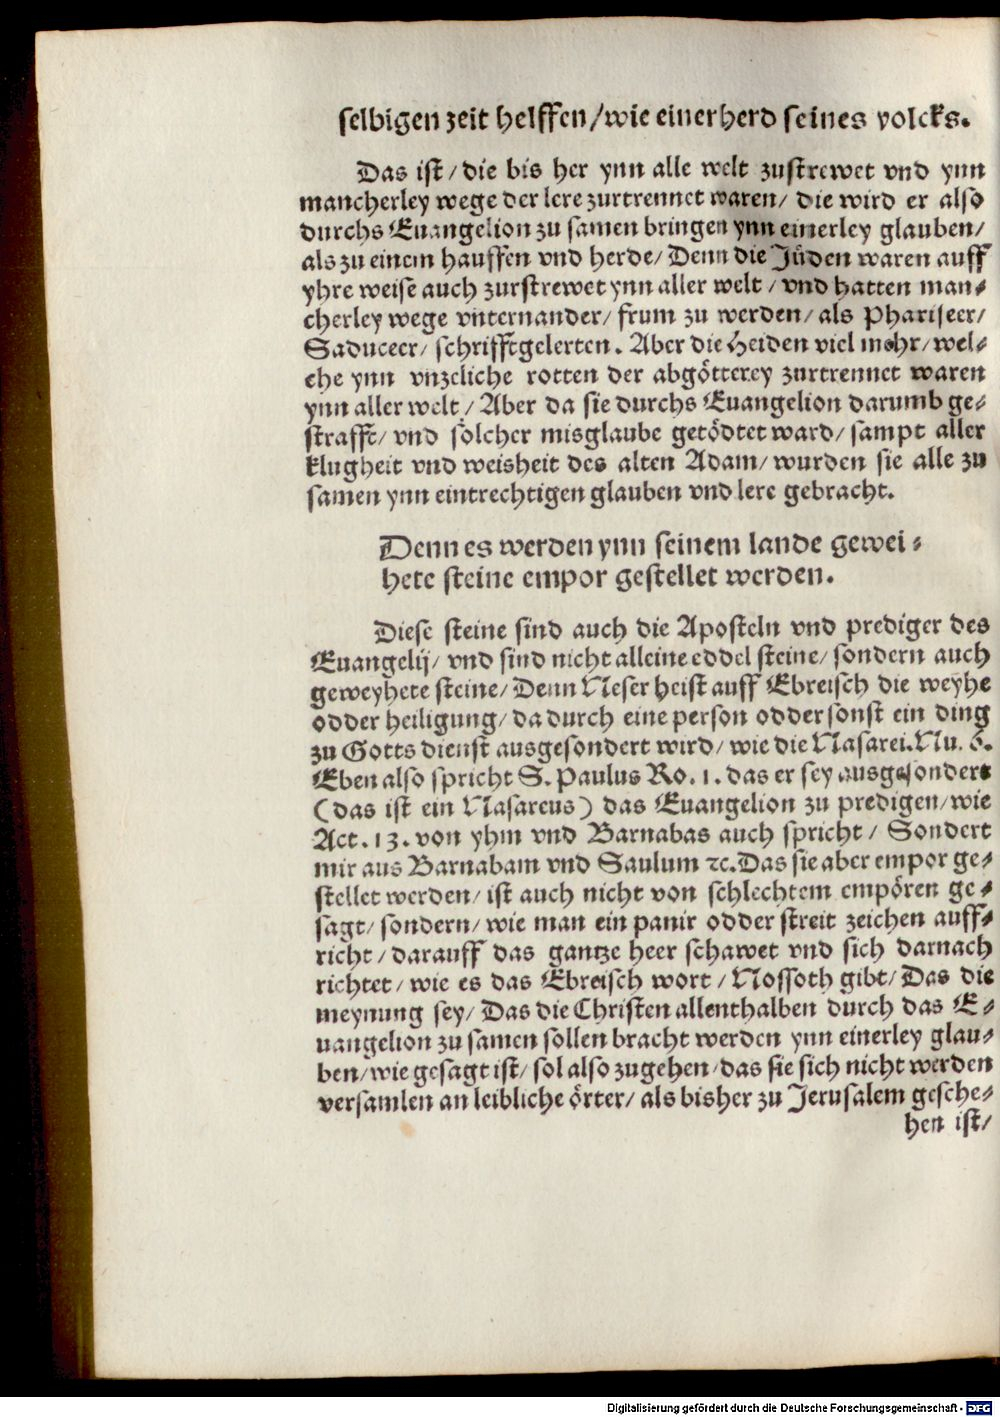 selbigen zeit helffen/wie einer herd seines volcks.
Das ist/ die bis her ynn alle welt zustrewet vnd ynn
mancherley wege der lere zurtrennet waren/ die wird er also
durchs Euangelion zu samen bringen ynn einerley glauben/
als zu einem hauffen vnd herde/ Denn die Jüden waren auff
yhre weise auch zurstrewet ynn aller welt / vnd hatten man⸗
cherley wege vnternander/ frum zu werden/ als Phariseer/
Saduceer/ schrifftgelerten. Aber die Heiden viel mehr/ wel⸗
che ynn vnzeliche rotten der abgötterey zurtrennet waren
ynn aller welt / Aber da sie durchs Euangelion darumb ge⸗
strafft/ vnd solcher misglaube getödtet ward/ sampt aller
klugheit vnd weisheit des alten Adam/ wurden sie alle zu
samen ynn eintrechtigen glauben vnd lere gebracht.
Denn es werden ynn seinem lande gewei⸗
hete steine empor gestellet werden.
Diese steine sind auch die Aposteln vnd prediger des
Euangelij/ vnd sind nicht alleine eddel steine/ sondern auch
geweyhete steine/ Denn Neser heist auff Ebreisch die weyhe
odder heiligung/ da durch eine person odder sonst ein ding
zu Gotts dienst ausgesondert wird/ wie die Nasarei. Nu. 6.
Eben also spricht S. Paulus Ro. 1. das er sey ausgesondert
(das ist ein Nasareus) das Euangelion zu predigen/ wie
Act. 13. von yhm vnd Barnabas auch spricht / Sondert
mir aus Barnabam vnd Saulum ⁊c. Das sie aber empor ge⸗
stellet werden/ ist auch nicht von schlechtem empören ge⸗
sagt/ sondern/ wie man ein panir odder streit zeichen auff⸗
richt / darauff das gantze heer schawet vnd sich darnach
richtet/ wie es das Ebreisch wort / Nossoth gibt/ Das die
meynung sey/ Das die Christen allenthalben durch das E⸗
uangelion zu samen sollen bracht werden ynn einerley glau⸗
ben/ wie gesagt ist/ sol also zugehen/ das sie sich nicht werden
versamlen an leibliche örter/ als bisher zu Jerusalem gesche⸗
hen ist/
Digitalisierung gefördert durch die Deutsche Forschungsgemeinschaft - DFG